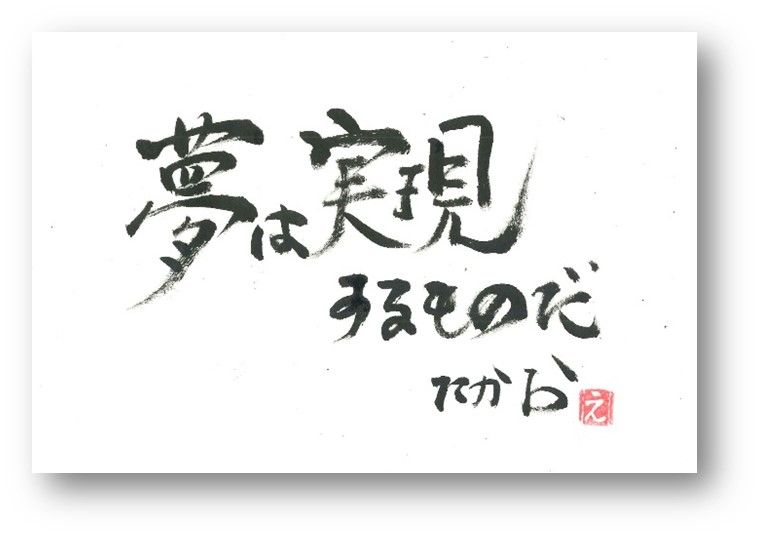 夢は実現
するものだ
たかお
え